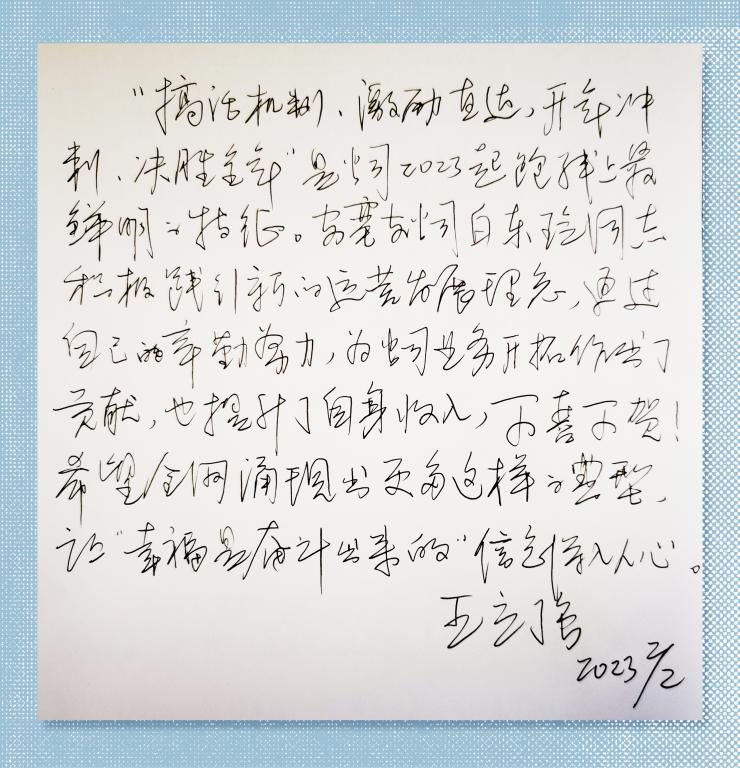 “搞活机制、激励直达，开年冲
刺、决胜全年”是公司2023起跑线上最
鲜明的特征。安徽分公司白东玲同志
积极践行新的运营发展理念，通过
自己的辛勤努力，为公司业务开拓作出了
贡献，也提升了自身收入，可喜可贺！
希望全网涌现出更多这样的典型，
让“幸福是奋斗出来的”信念深入人心。
王立强
2023 2/2